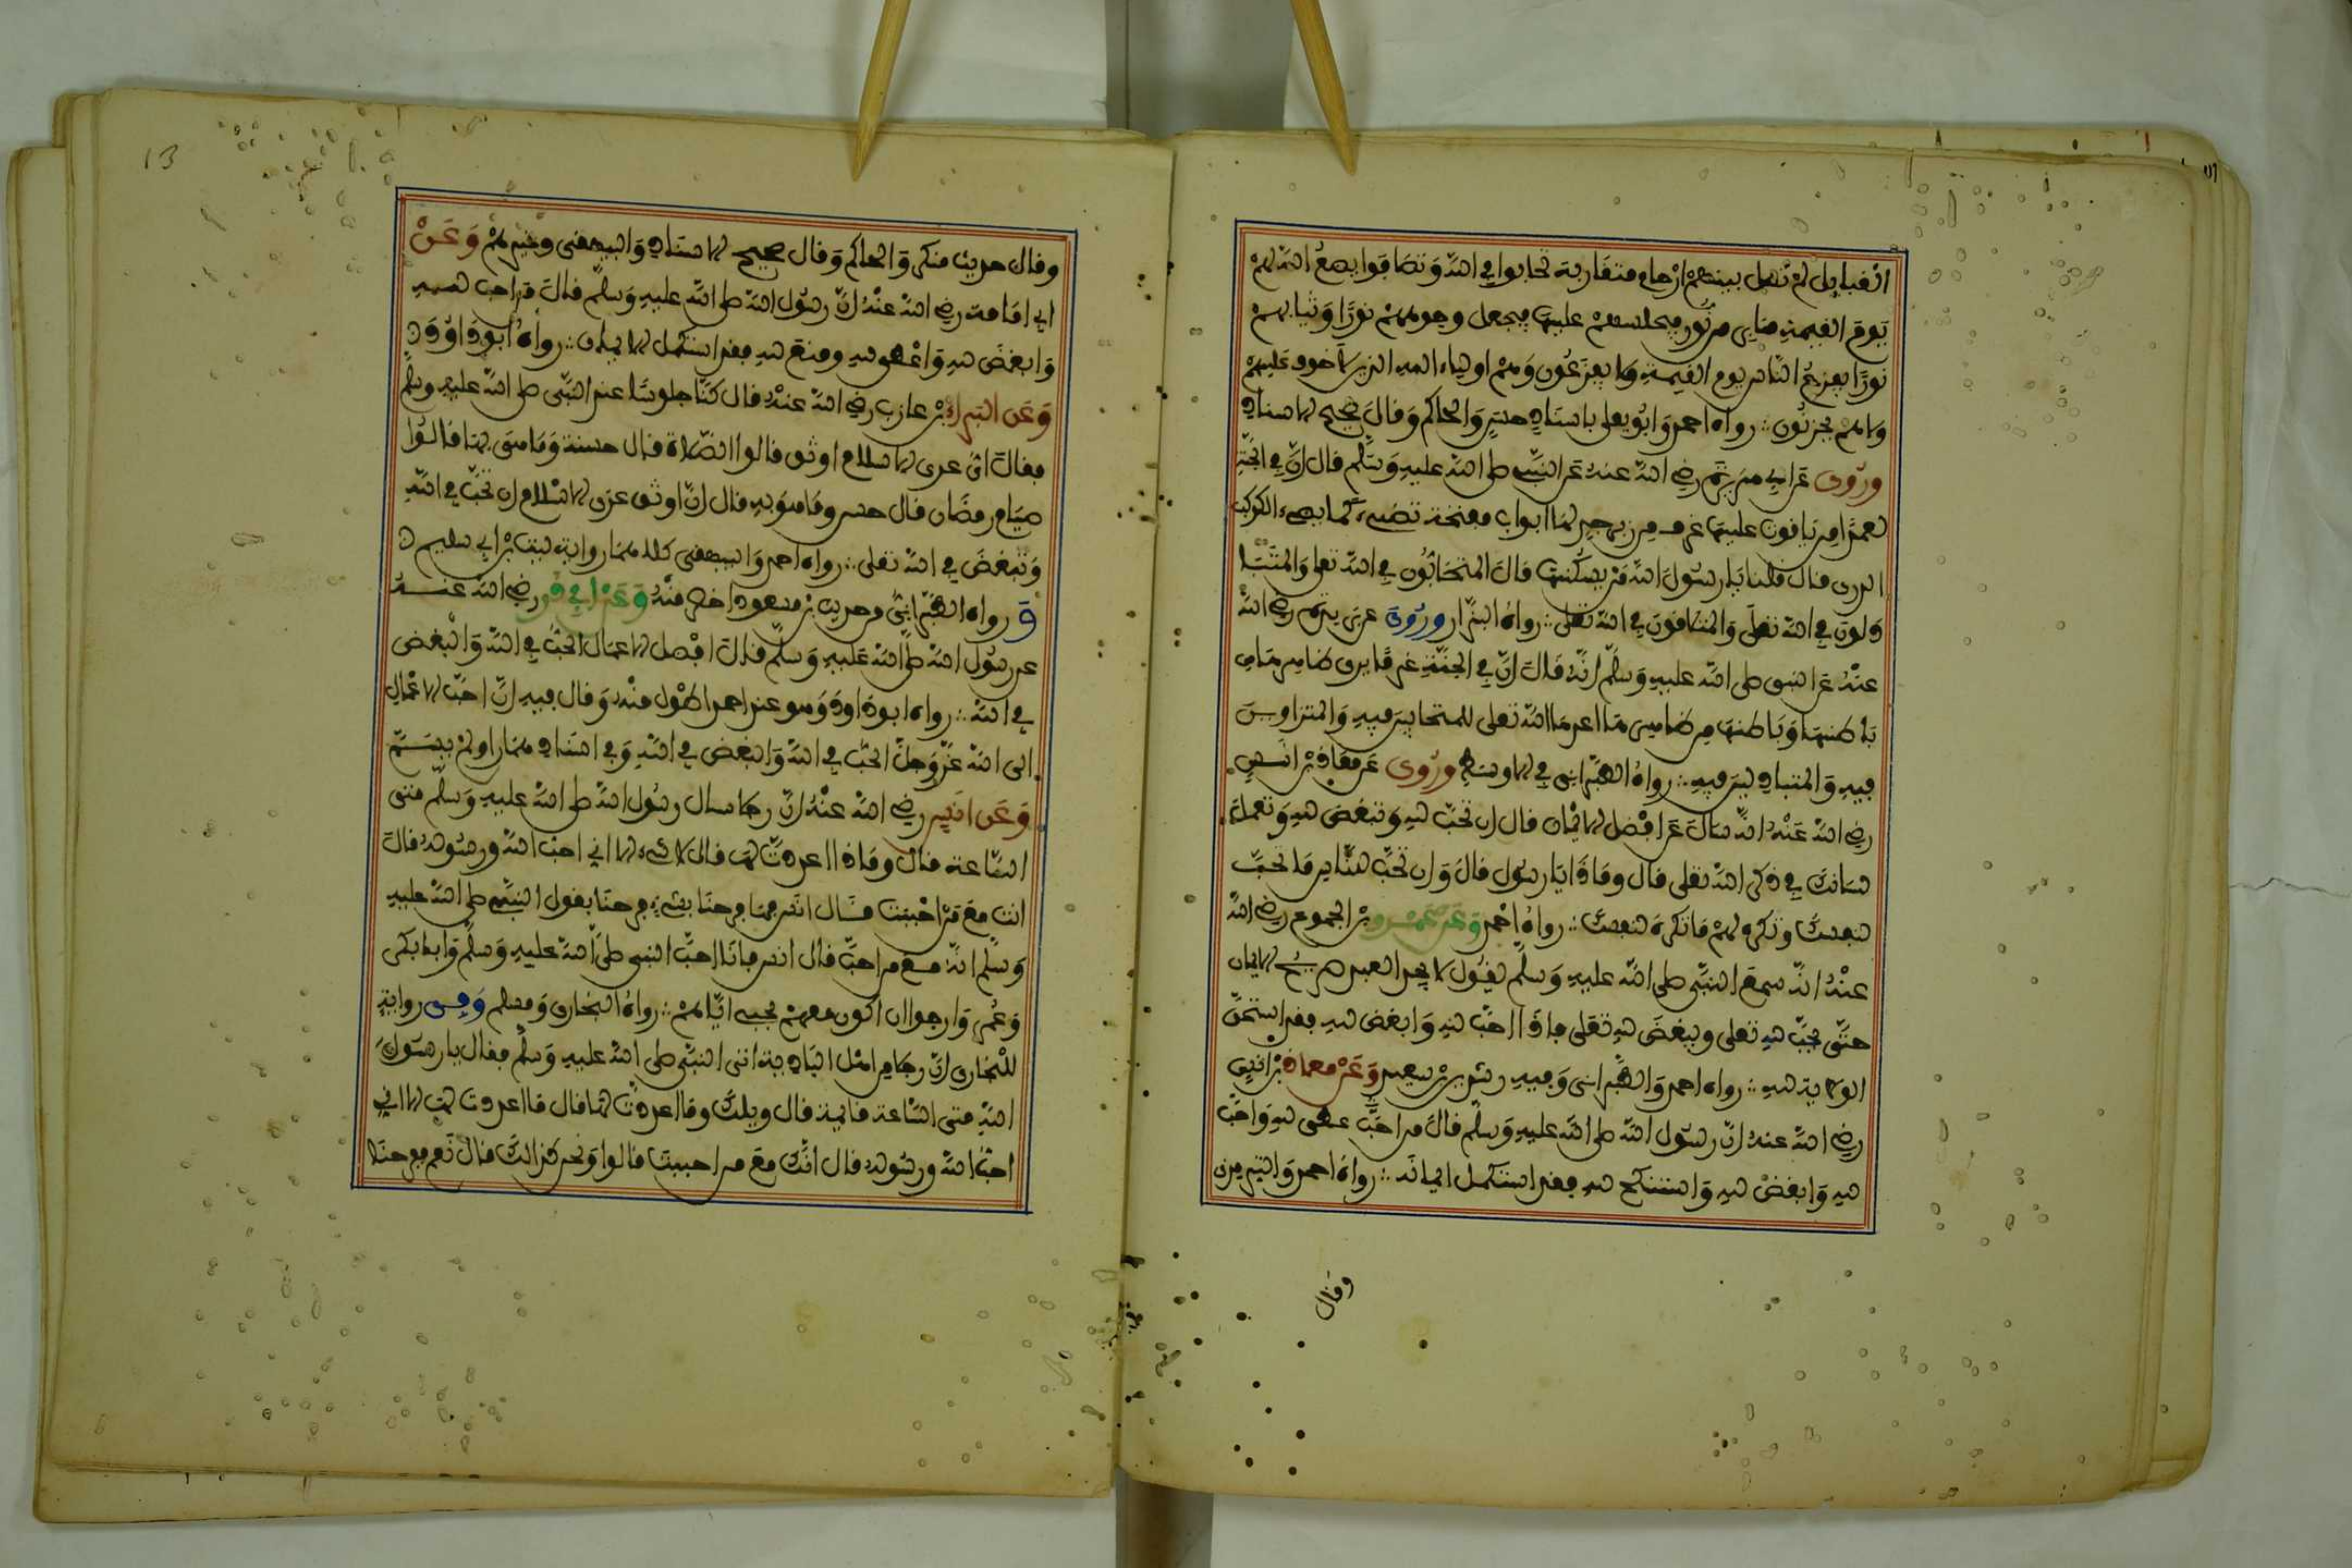 القبايل لم تصل بينهم ارحام متقاربة تحابوا في الله وتصافوا يضع الله لهم
يوم القيمة منابر من نور فيجلسهم عليها فيجعل وجوههم نورا وثيابهم
نورا يفزع الناس يوم القيمة ولا يفزعون وهم اولياء الله الذين لا خوف عليهم
ولا هم يحزنون رواه احمد وابو يعلى باسناد حسن والحاكم وقال صحيح الاسناد
وروى عن ابي هريرة رضي الله عنه عن النبي صلى الله عليه وسلم قال ان في الجنة
لعمدا من ياقوت عليها غرف من زبرجد لها ابواب مفتحة تضيء كما يضيء الكوكب
الدري قال قلنا يا رسول الله من يسكنها قال المتحابون في الله تعلى والمتبا
ذلون في الله تعلى والمتلاقون في الله تعلى رواه البزار وروى عن بريدة رضي الله
عنه عن النبي صلى الله عليه وسلم انه قال ان في الجنة غرفا يرى ظاهرها من
باطنها وباطنها من ظاهرها اعدها الله تعلى للمتحابين فيه والمتزاورين
فيه والمتباذلين فيه رواه الطبراني في الاوسط وروى عن معاذ بن انس
رضي الله عنه انه سال عن افضل الايمان قال ان تحب لله وتبغض لله وتعمل
لسانك في ذكر الله تعلى قال وماذا يا رسول قال وان تحب للناس ما تحب
لنفسك وتكره لهم ما تكره لنفسك رواه احمد وعن عمرو بن الجموح رضي الله
عنه انه سمع النبي صلى الله عليه وسلم يقول لا يجد العبد صريح الايمان
حتى يحب لله تعلى ويبغض لله تعلى فاذا احب لله وابغض لله فقد استحق
الولاية لله رواه احمد والطبراني وفيه رشدين بن سعد وعن معاذ بن انس
رضي الله عنه ان رسول الله صلى الله عليه وسلم قال من احب عطى لله واحب
لله وابغض لله واستنكح لله فقد استكمل ايمانه رواه احمد والترمذي
وقال
13
وقال حديث منكر والحاكم وقال صحيح الاسناد والبيهقي وغيرهم وعن
ابي امامة رضي الله عنه ان رسول الله صلى الله عليه وسلم قال من احب لله
وابغض لله واعطى لله ومنع لله فقد استكمل الايمان رواه ابو داوود
وعن البراء بن عازب رضي الله عنه قال كنا جلوسا عند النبي صلى الله عليه وسلم
فقال اي عرى الاسلام اوثق قالوا الصلاة قال حسنة وما هي بها قالوا
صيام رمضان قال حسن وما هو به قال ان اوثق عرى الاسلام ان تحب في الله
وتبغض في الله تعلى رواه احمد والبيهقي كلاهما رواية ليث بن ابي سليم
ورواه الطبراني من حديث بن مسعود اخصر منه وعن ابي ذر رضي الله عنه
عن رسول الله صلى الله عليه وسلم قال افضل الاعمال الحب في الله والبغض
في الله رواه ابو داود وهو عند احمد اطول منه وقال فيه ان احب الاعمال
الى الله عز وجل الحب في الله والبغض في الله وفي اسنادهما راو لم يسم
وعن انس رضي الله عنه ان رجلا سال رسول الله صلى الله عليه وسلم متى
الساعة قال وماذا اعددت لها قال لا شيء الا اني احب الله ورسوله قال
انت مع من احببت قال انس فما فرحنا بشيء فرحنا بقول النبي صلى الله عليه
وسلم انت مع من احب قال انس فانا احب النبي صلى الله عليه وسلم وابا بكر
وعمر وارجوا ان اكون معهم بحبي اياهم رواه البخاري ومسلم وفي رواية
للبخاري ان رجلا من اهل البادية اتى النبي صلى الله عليه وسلم فقال يا رسول
الله متى الساعة قائمة قال ويلك وما اعددت لها قال ما اعددت لها الا اني
احب الله ورسوله قال انك مع من احببت قالوا ونحن كذالك قال نعم ففرحنا